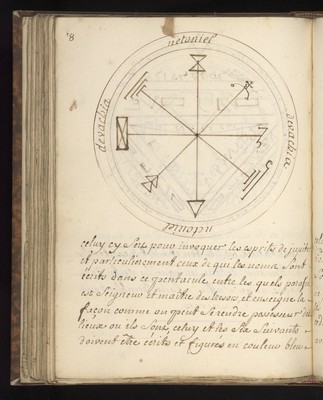 8
netoniel
devachia
devachia
netoniel
celuy cy Sert pour invoquer les esprits de jupiter
et particulierement ceux de qui les noms Sont
écrits dans ce pentacule entre les quels
est Seigneur et maitre des tresors, et enseigne la
façon comme on peut Se rendre possesseur des
lieux ou ils Sont, celuy et les Six Suivants
doivent être écrits et figurés en couleur bleu